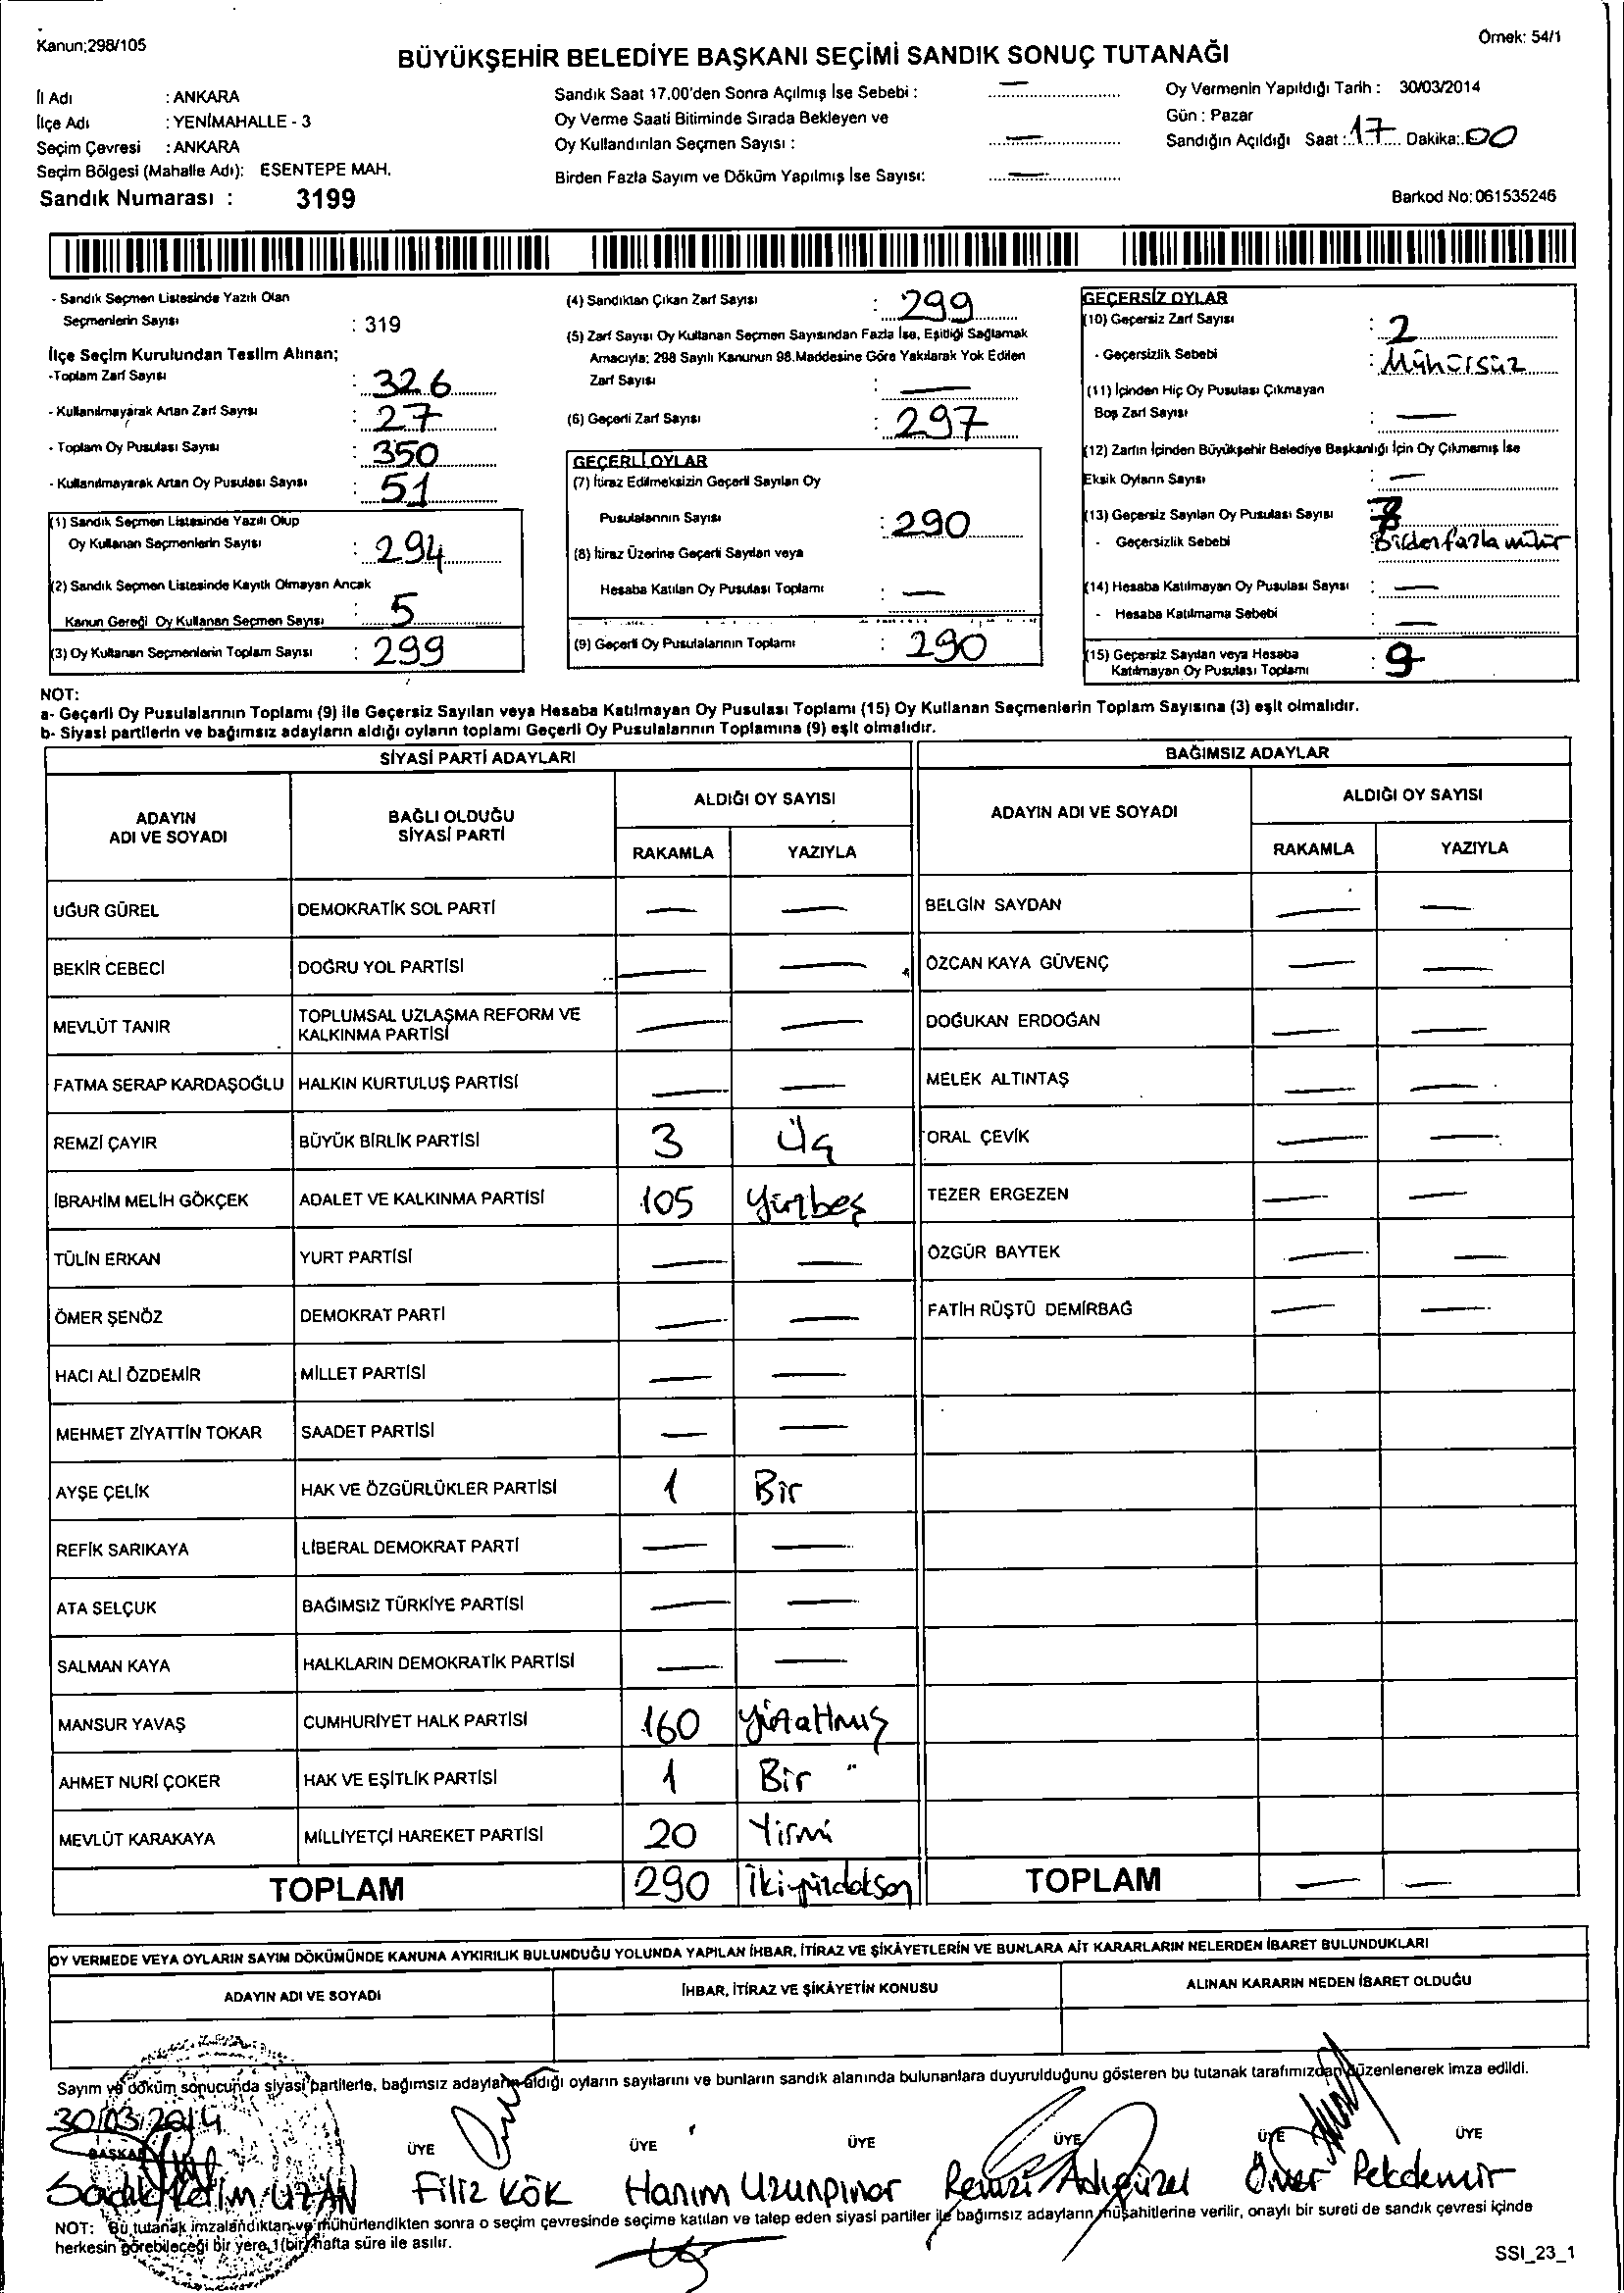 Kanun:298/105
Örnek: 54/1
BÜYÜKŞEHİR BELEDİYE BAŞKANI SEÇİMİ SANDIK SONUÇ TUTANAĞI
İl Adı : ANKARA
İlçe Adı : YENİMAHALLE - 3
Seçim Çevresi : ANKARA
Seçim Bölgesi (Mahalle Adı): ESENTEPE MAH.
Sandık Numarası : 3199
Sandık Saat 17.00'den Sonra Açılmış İse Sebebi : —
Oy Verme Saati Bitiminde Sırada Bekleyen ve
Oy Kullandırılan Seçmen Sayısı : —
Birden Fazla Sayım ve Döküm Yapılmış İse Sayısı: —
Oy Vermenin Yapıldığı Tarih : 30/03/2014
Gün : Pazar
Sandığın Açıldığı Saat : 17 Dakika: 00
Barkod No: 061535246
- Sandık Seçmen Listesinde Yazılı Olan
Seçmenlerin Sayısı : 319
İlçe Seçim Kurulundan Teslim Alınan;
-Toplam Zarf Sayısı : 326
- Kullanılmayarak Artan Zarf Sayısı : 27
- Toplam Oy Pusulası Sayısı : 350
- Kullanılmayarak Artan Oy Pusulası Sayısı : 51
(1) Sandık Seçmen Listesinde Yazılı Olup
Oy Kullanan Seçmenlerin Sayısı : 294
(2) Sandık Seçmen Listesinde Kayıtlı Olmayan Ancak
Kanun Gereği Oy Kullanan Seçmen Sayısı : 5
(3) Oy Kullanan Seçmenlerin Toplam Sayısı : 299
(4) Sandıktan Çıkan Zarf Sayısı : 299
(5) Zarf Sayısı Oy Kullanan Seçmen Sayısından Fazla İse, Eşitliği Sağlamak
Amacıyla; 298 Sayılı Kanunun 98.Maddesine Göre Yakılarak Yok Edilen
Zarf Sayısı : —
(6) Geçerli Zarf Sayısı : 297
GEÇERLİ OYLAR
(7) İtiraz Edilmeksizin Geçerli Sayılan Oy
Pusulalarının Sayısı : 290
(8) İtiraz Üzerine Geçerli Sayılan veya
Hesaba Katılan Oy Pusulası Toplamı : —
(9) Geçerli Oy Pusulalarının Toplamı : 290
GEÇERSİZ OYLAR
(10) Geçersiz Zarf Sayısı : 2
- Geçersizlik Sebebi : Mühürsüz
(11) İçinden Hiç Oy Pusulası Çıkmayan
Boş Zarf Sayısı : —
(12) Zarfın İçinden Büyükşehir Belediye Başkanlığı İçin Oy Çıkmamış İse
Eksik Oyların Sayısı : —
(13) Geçersiz Sayılan Oy Pusulası Sayısı
- Geçersizlik Sebebi : Birden fazla mühür
(14) Hesaba Katılmayan Oy Pusulası Sayısı : —
- Hesaba Katılmama Sebebi : —
(15) Geçersiz Sayılan veya Hesaba
Katılmayan Oy Pusulası Toplamı : 9
NOT:
a- Geçerli Oy Pusulalarının Toplamı (9) ile Geçersiz Sayılan veya Hesaba Katılmayan Oy Pusulası Toplamı (15) Oy Kullanan Seçmenlerin Toplam Sayısına (3) eşit olmalıdır.
b- Siyasi partilerin ve bağımsız adayların aldığı oyların toplamı Geçerli Oy Pusulalarının Toplamına (9) eşit olmalıdır.
SİYASİ PARTİ ADAYLARI
ADAYIN ADI VE SOYADI
BAĞLI OLDUĞU SİYASİ PARTİ
ALDIĞI OY SAYISI
RAKAMLA YAZIYLA
UĞUR GÜREL DEMOKRATİK SOL PARTİ — —
BEKİR CEBECİ DOĞRU YOL PARTİSİ — —
MEVLÜT TANIR TOPLUMSAL UZLAŞMA REFORM VE
KALKINMA PARTİSİ — —
FATMA SERAP KARDAŞOĞLU HALKIN KURTULUŞ PARTİSİ — —
REMZİ ÇAYIR BÜYÜK BİRLİK PARTİSİ 3 Üç
İBRAHİM MELİH GÖKÇEK ADALET VE KALKINMA PARTİSİ 105 Yüzbeş
TÜLİN ERKAN YURT PARTİSİ — —
ÖMER ŞENÖZ DEMOKRAT PARTİ — —
HACI ALİ ÖZDEMİR MİLLET PARTİSİ — —
MEHMET ZİYATTİN TOKAR SAADET PARTİSİ — —
AYŞE ÇELİK HAK VE ÖZGÜRLÜKLER PARTİSİ 1 Bir
REFİK SARIKAYA LİBERAL DEMOKRAT PARTİ — —
ATA SELÇUK BAĞIMSIZ TÜRKİYE PARTİSİ — —
SALMAN KAYA HALKLARIN DEMOKRATİK PARTİSİ — —
MANSUR YAVAŞ CUMHURİYET HALK PARTİSİ 160 Yüzatmış
AHMET NURİ ÇOKER HAK VE EŞİTLİK PARTİSİ 1 Bir
MEVLÜT KARAKAYA MİLLİYETÇİ HAREKET PARTİSİ 20 Yirmi
TOPLAM 290 İkiyüzdoksan
BAĞIMSIZ ADAYLAR
ADAYIN ADI VE SOYADI
ALDIĞI OY SAYISI
RAKAMLA YAZIYLA
BELGİN SAYDAN — —
ÖZCAN KAYA GÜVENÇ — —
DOĞUKAN ERDOĞAN — —
MELEK ALTINTAŞ — —
ORAL ÇEVİK — —
TEZER ERGEZEN — —
ÖZGÜR BAYTEK — —
FATİH RÜŞTÜ DEMİRBAĞ — —
TOPLAM — —
OY VERMEDE VEYA OYLARIN SAYIM DÖKÜMÜNDE KANUNA AYKIRILIK BULUNDUĞU YOLUNDA YAPILAN İHBAR, İTİRAZ VE ŞİKÂYETLERİN VE BUNLARA AİT KARARLARIN NELERDEN İBARET BULUNDUKLARI
ADAYIN ADI VE SOYADI
İHBAR, İTİRAZ VE ŞİKÂYETİN KONUSU
ALINAN KARARIN NEDEN İBARET OLDUĞU
Sayım ve döküm sonucunda siyasi partilerle, bağımsız adayların aldığı oyların sayılarını ve bunların sandık alanında bulunanlara duyurulduğunu gösteren bu tutanak tarafımızdan düzenlenerek imza edildi.
30/03/2014
BAŞKAN ÜYE ÜYE ÜYE ÜYE ÜYE ÜYE
Sadık Kerim UZAN Filiz KÖK Hanım Uzunpınar Remzi Adıgüzel Ömer Pekdemir
NOT: Bu tutanak imzalandıktan ve mühürlendikten sonra o seçim çevresinde seçime katılan ve talep eden siyasi partiler ile bağımsız adayların müşahitlerine verilir, onaylı bir sureti de sandık çevresi içinde
herkesin görebileceği bir yere, 1(bir) hafta süre ile asılır.
SSI_23_1